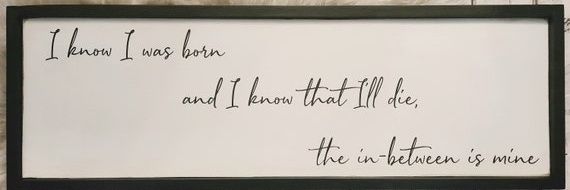 I know I was born
and I know that I'll die,
the in-between is mine